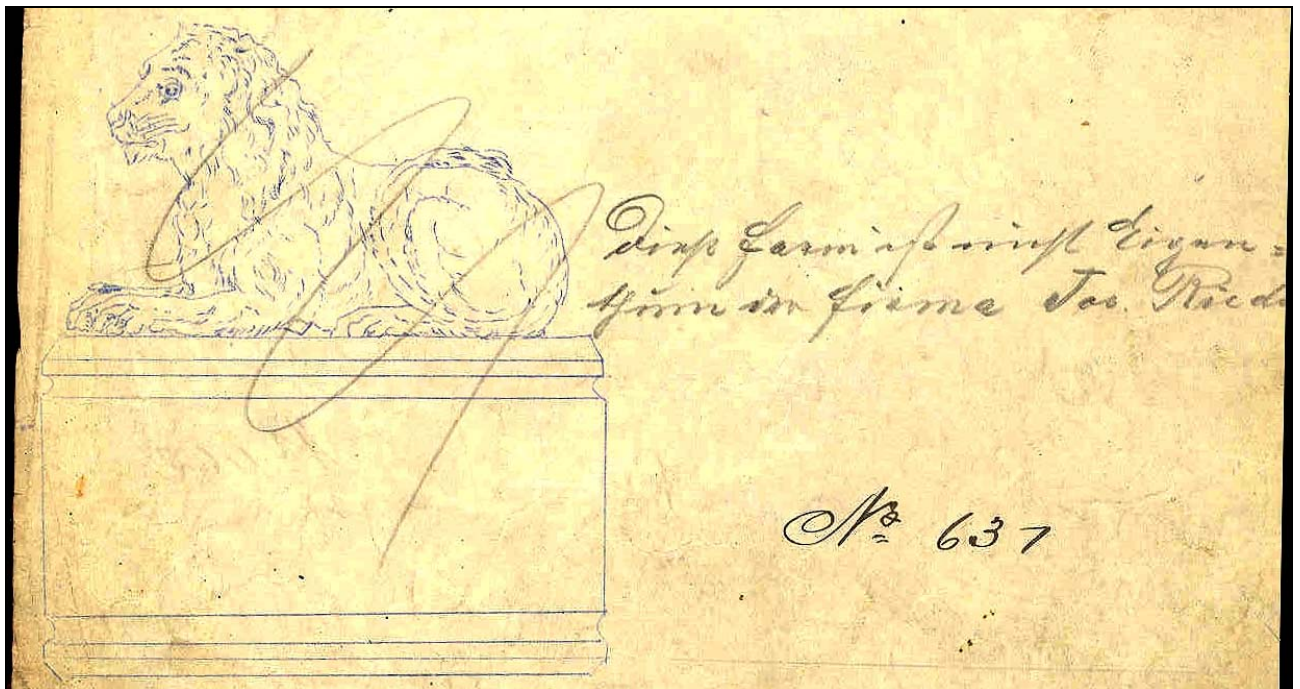 Diese Form ist nicht Eigen=
thum der Firma Jos. Riede
No 637